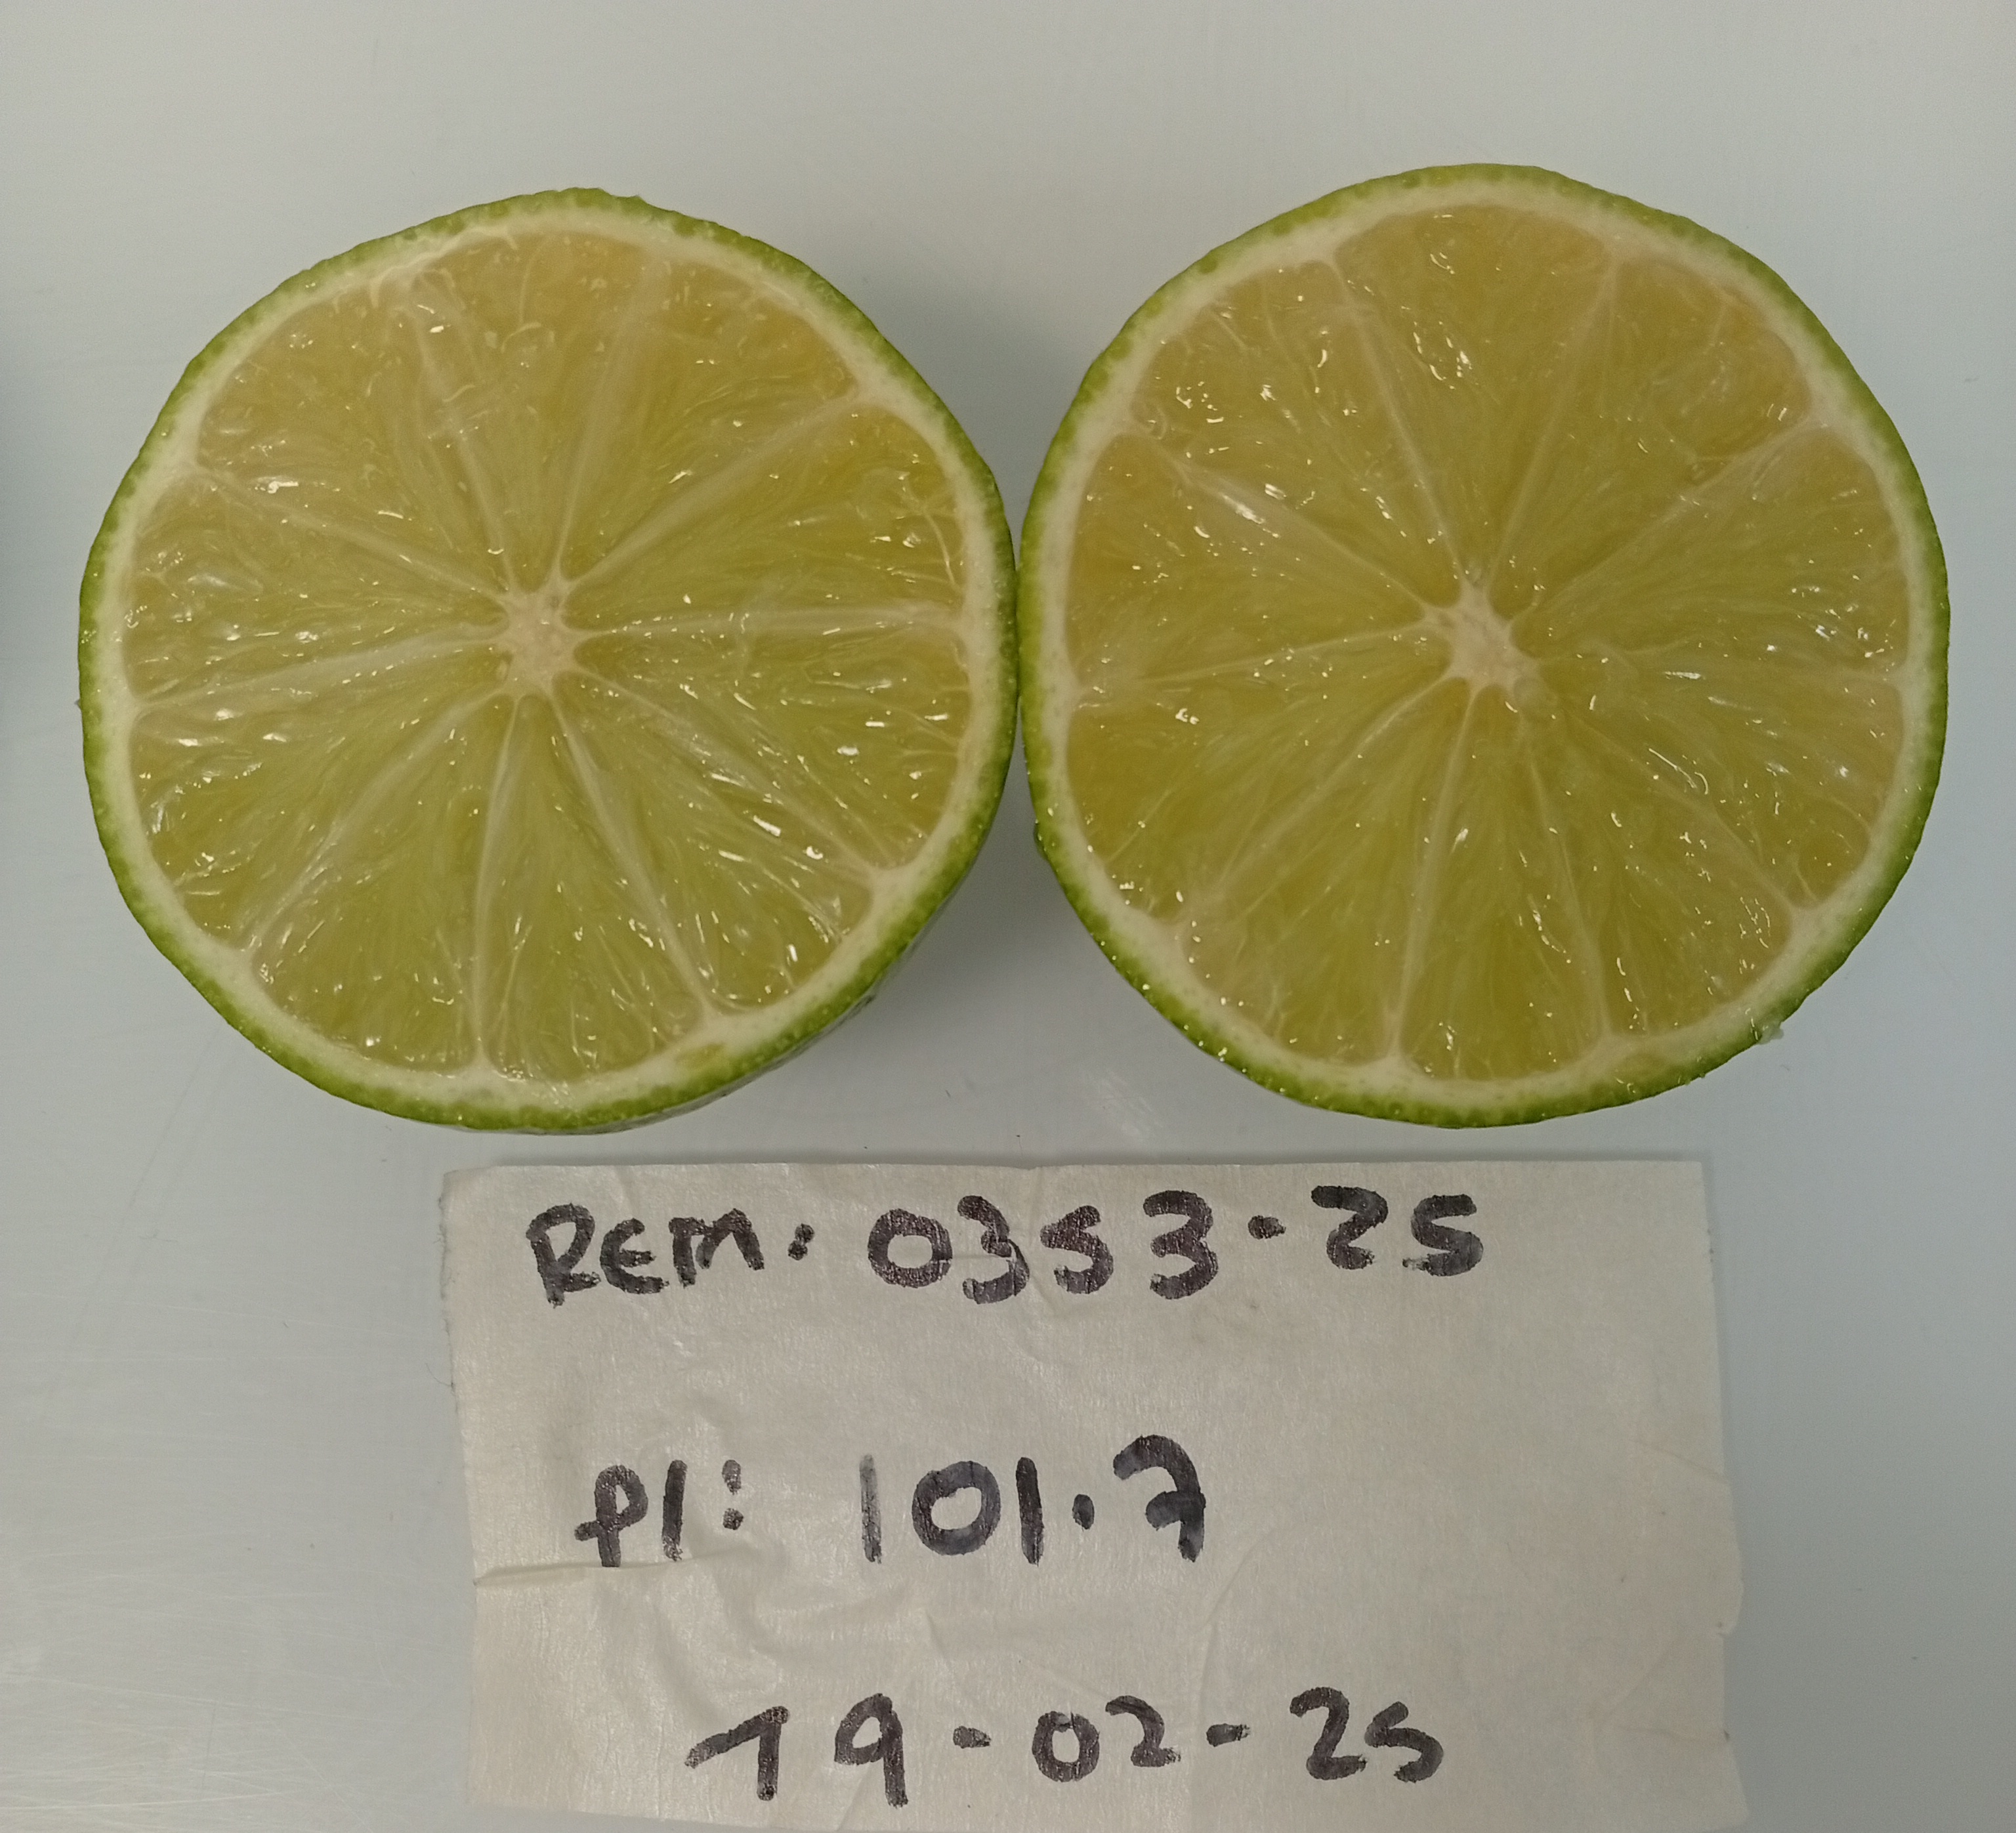 REM: 0353-25
Pl: 101.7
19-02-25